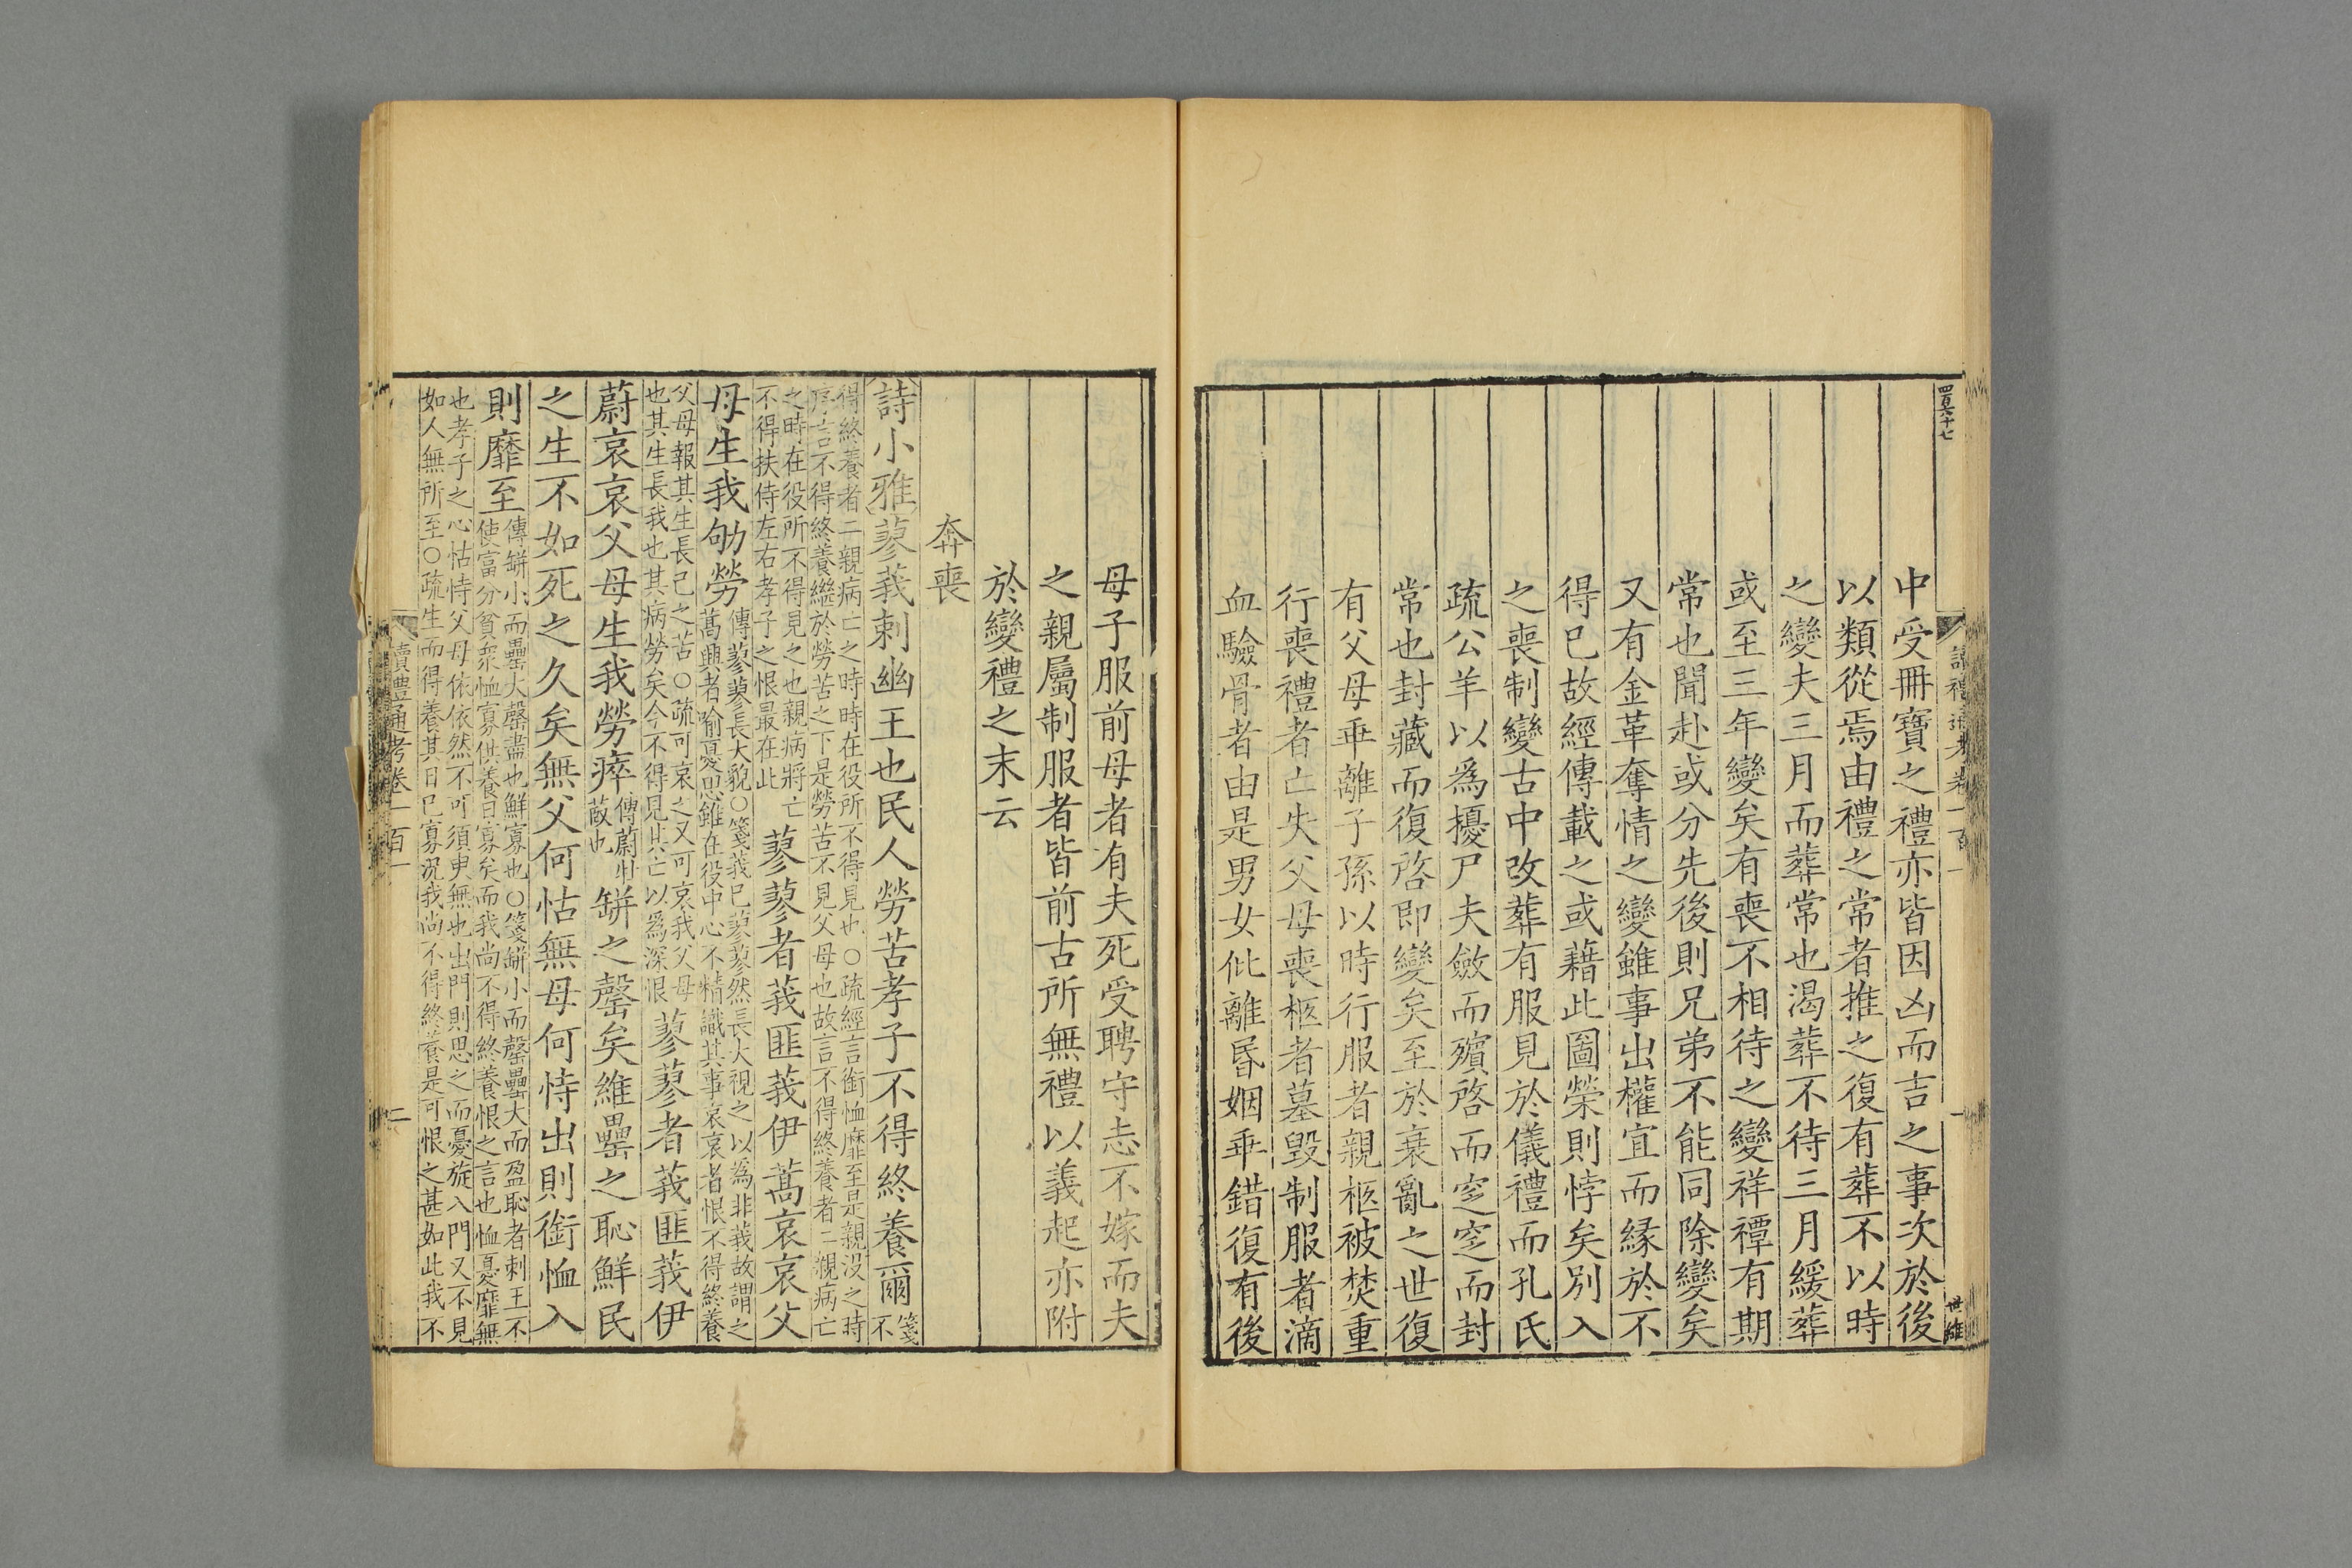 四百六十七
讀禮通考卷一百一
一
世維
中受冊寶之禮亦皆因凶而吉之事次於後
以類從焉由禮之常者推之復有葬不以時
之變夫三月而葬常也渴葬不待三月緩葬
或至三年變矣有喪不相待之變祥禫有期
常也聞赴或分先後則兄弟不能同除變矣
又有金革奪情之變雖事出權宜而緣於不
得已故經傳載之或藉此圖榮則悖矣別入
之喪制變古中改葬有服見於儀禮而孔氏
疏公羊以爲擾尸夫斂而殯啓而窆窆而封
常也封藏而復啓即變矣至於衰亂之世復
有父母乖離子孫以時行服者親柩被焚重
行喪禮者亡失父母喪柩者墓毀制服者滴
血驗骨者由是男女仳離昏姻乖錯復有後
母子服前母者有夫死受聘守志不嫁而夫
之親屬制服者皆前古所無禮以義起亦附
於變禮之末云
奔喪
詩小雅蓼莪刺幽王也民人勞苦孝子不得終養爾箋不
得終養者二親病亡之時時在役所不得見也○疏經言銜恤靡至是親沒之時
序言不得終養繼於勞苦之下是勞苦不見父母也故言不得終養者二親病亡
之時在役所不得見之也親病將亡
不得扶侍左右孝子之恨最在此
蓼蓼者莪匪莪伊蒿哀哀父
母生我劬勞傳蓼蓼長大貌○箋莪已蓼蓼然長大視之以爲非莪故謂之
蒿興者喻憂思雖在役中心不精識其事哀哀者恨不得終養
父母報其生長己之苦○疏可哀之又可哀我父母
也其生長我也其病勞矣今不得見其亡以爲深恨
蓼蓼者莪匪莪伊
蔚哀哀父母生我勞瘁傳蔚牡
菣也
缾之罄矣維罍之恥鮮民
之生不如死之久矣無父何怙無母何恃出則銜恤入
則靡至傳缾小而罍大罄盡也鮮寡也○箋缾小而罄罍大而盈恥者刺王不
使富分貧衆恤寡供養日寡矣而我尚不得終養恨之言也恤憂靡無
也孝子之心怙恃父母依依然不可須臾無也出門則思之而憂旋入門又不見
如人無所至○疏生而得養其日已寡況我尚不得終養是可恨之甚如此我不
讀禮通考卷一百一
二